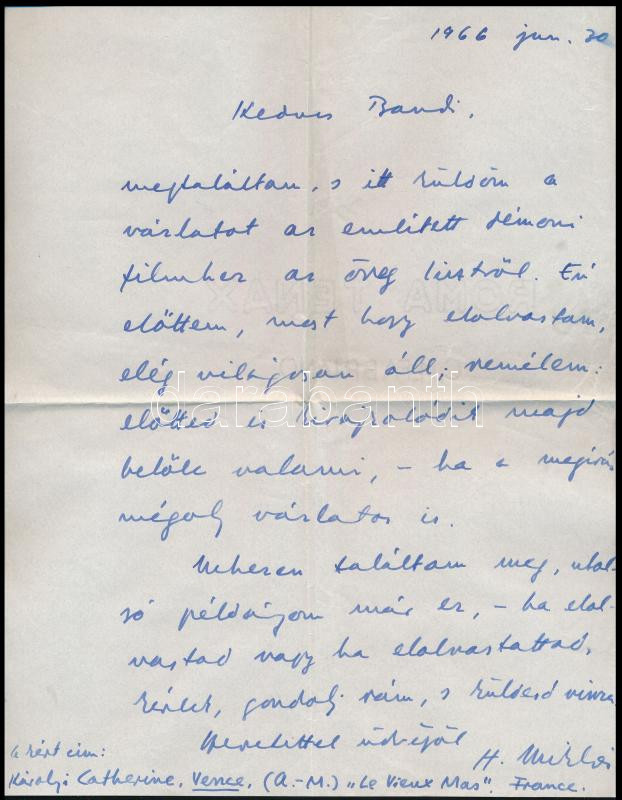 1966 jun. 20
Kedves Bandi,
megtaláltam, s itt küldöm a
vázlatot az említett démoni
filmhez az öreg Lisztről. Én
előttem, most hogy elolvastam,
elég világosan áll; remélem:
előtted is kirajzolódik majd
belőle valami, – ha a megírás
mégoly vázlatos is.
Nehezen találtam meg, utol-
só példányom már ez, – ha elol-
vastad vagy ha elolvastattad,
kérlek, gondolj rám, s küldesd vissza
Szeretettel üdvözöl
H. Miklós
a kért cím:
Károlyi Catherine, Vence, (A.-M.) "Le Vieux Mas". France.
darabanth